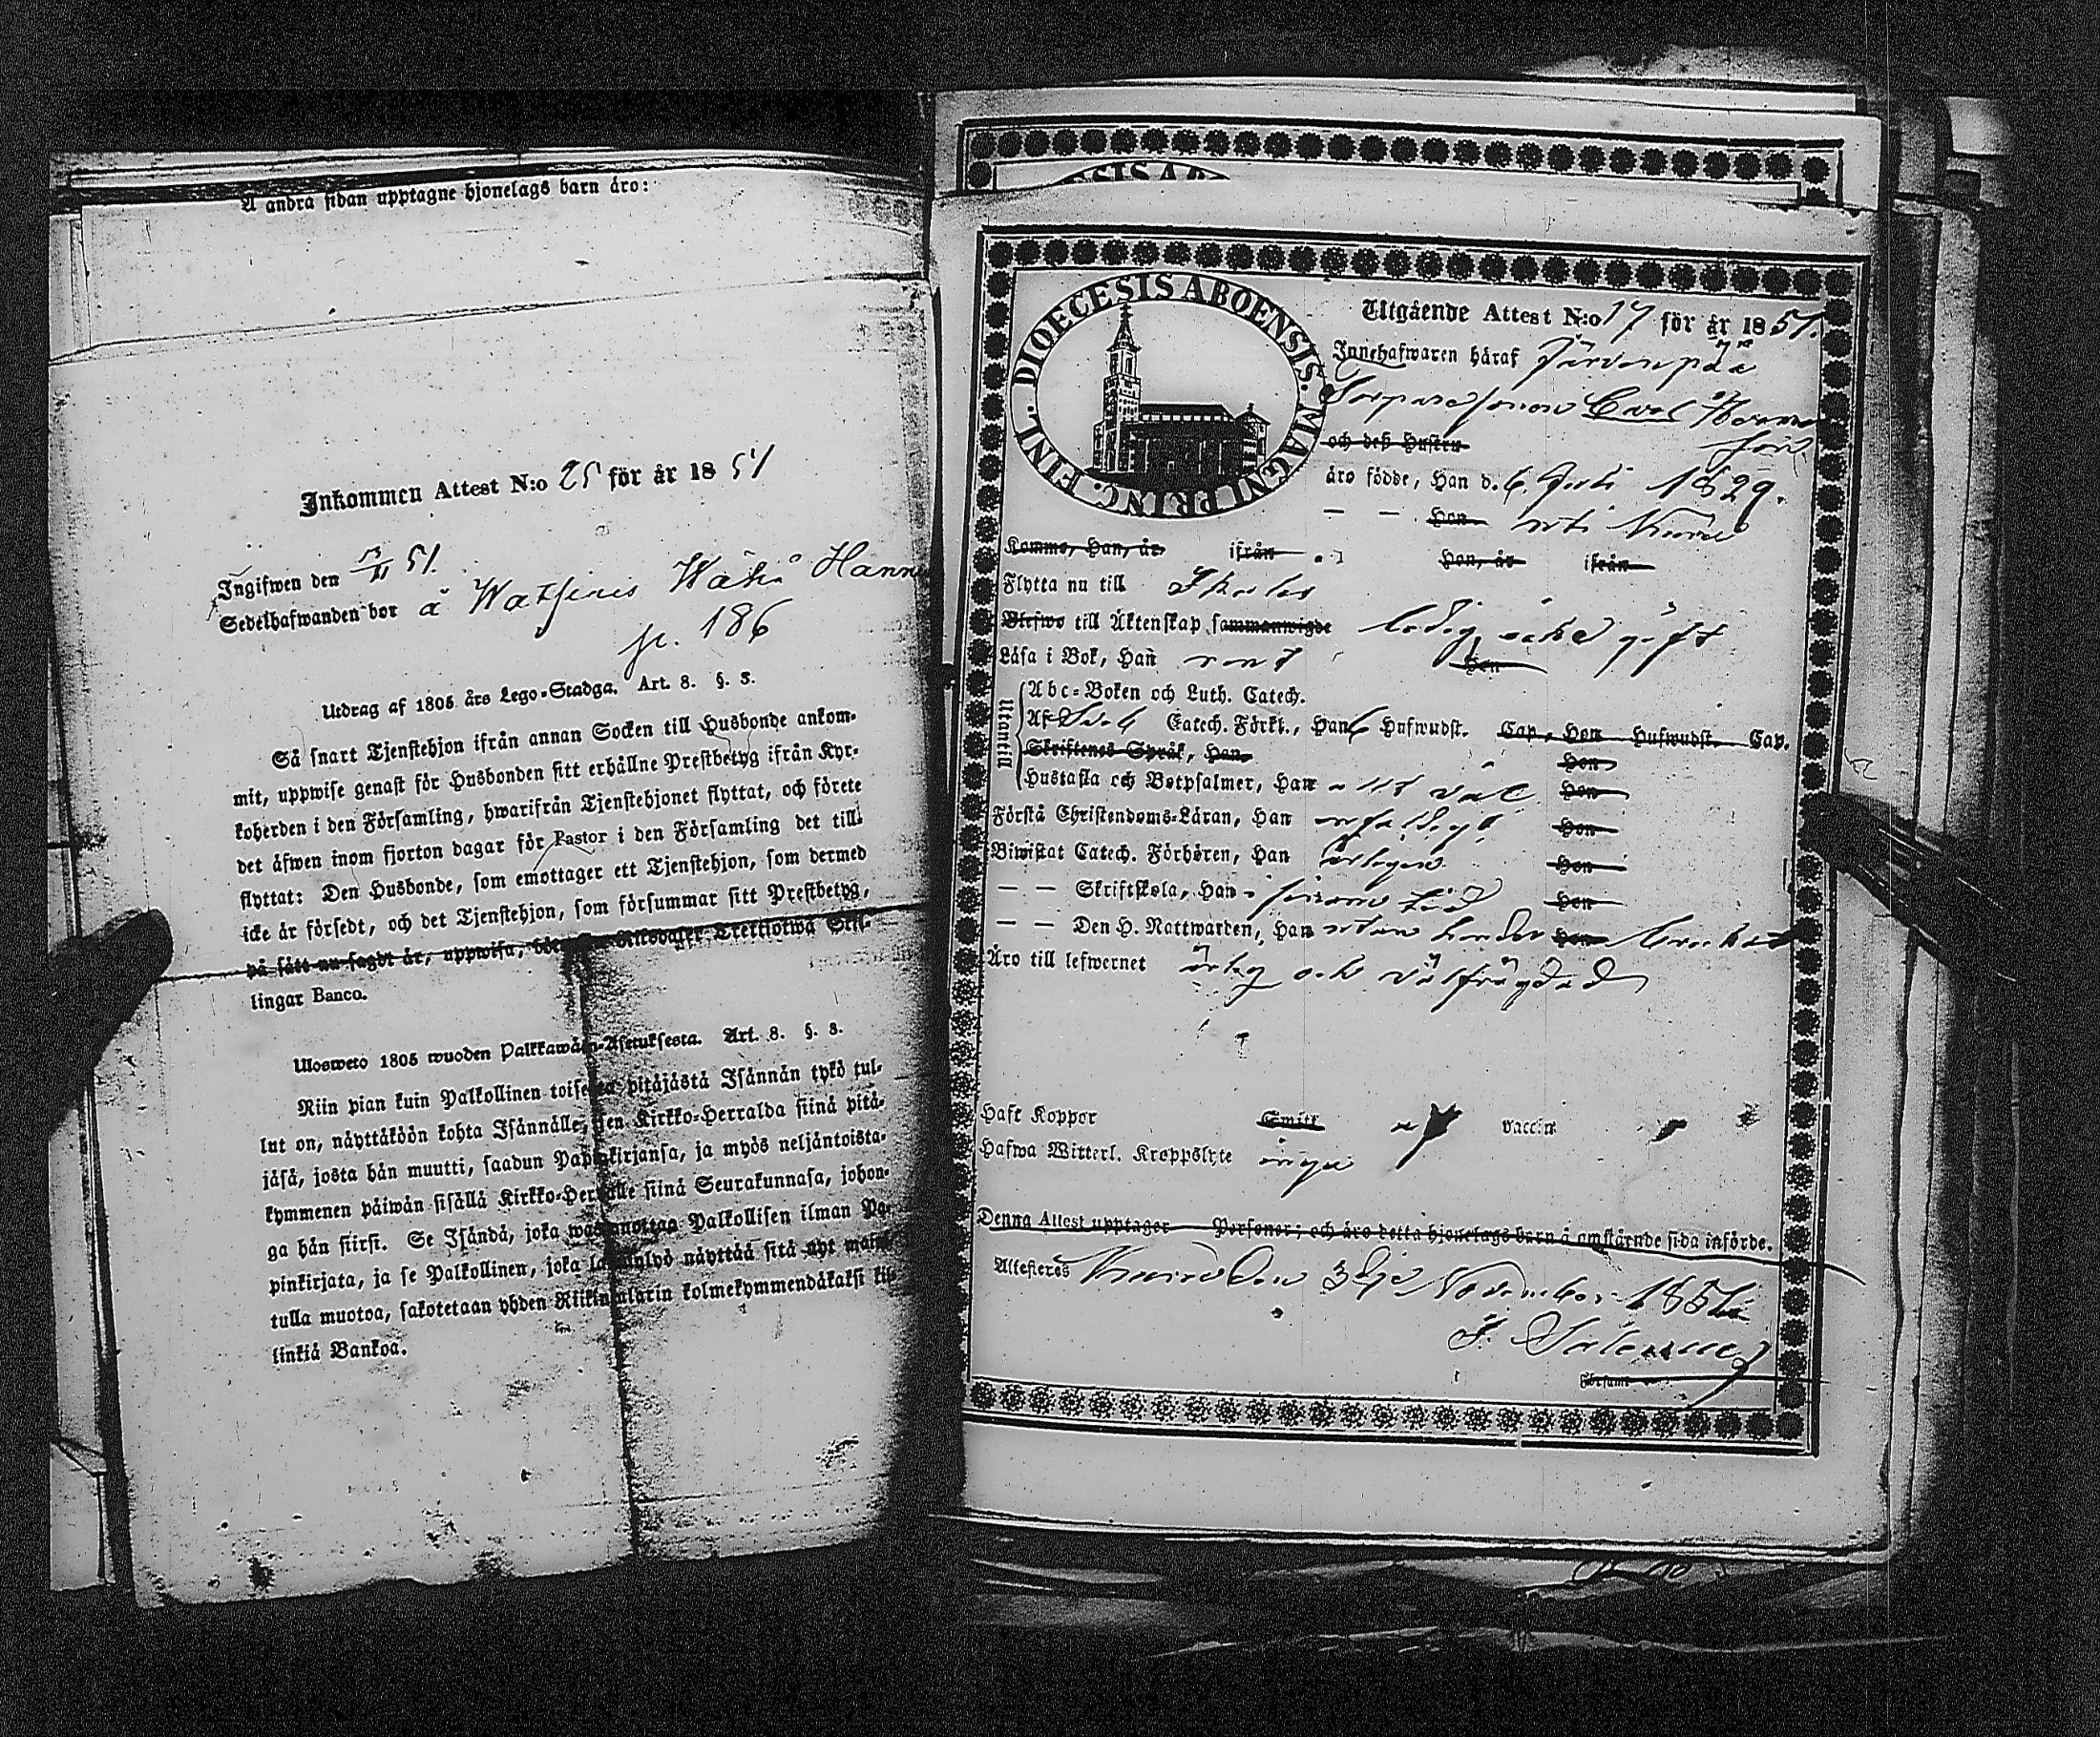 A andra sidan upptagne hjonelags barn äro:
Inkommen Attest N:o 25 för år 1851
Ingifwen den 51.
Sedelhafwanden bor å Wähä Hann
p. 186
Utdrag af 1805 års Lego-Stadga. Art. 8. §. 8.
Så snart Tjenstehjon ifrån annan Socken till Husbonde ankom-
mit, uppwise genast för Husbonden sitt erhållne Prestbetyg ifrån Kyr-
koherden i den Församling, hwarifrån Tjenstehjonet flyttat, och förete
det äfwen inom fjorton dagar för Pastor i den Församling det till-
flyttat: Den Husbonde, som emottager ett Tjenstehjon, som dermed
icke är försedt, och det Tjenstehjon, som försummar sitt Prestbetyg,
på sätt nu sagdt är, uppwisa, Riksdaler Trettiotwå Skil-
lingar Banco.
Ulosweto 1805 wuoden Palkkawäen-Asetuksesta. Art. 8. §. 8.
Niin pian kuin Palkollinen toisesta pitäjästä Isännän tykö tul-
lut on, näyttäköön kohta Isännälle, sen Kirkko-Herralda siinä pitä-
jäsä, josta hän muutti, saadun Papinkirjansa, ja myös neljäntoista-
kymmenen päiwän sisällä Kirkko-Herralle siinä Seurakunnasa, johon-
ga hän siirsi. Se Isändä, joka wastanottaa Palkollisen ilman Pa-
pinkirjata, ja se Palkollinen, joka laiminlyö näyttää sitä nyt maini-
tulla muotoa, sakotetaan yhden Riikintalarin kolmekymmendäkaksi kil-
linkiä Bankoa.
DIOECESIS ABOENSIS. MAGNI PRINC. FINL.
Utgående Attest N:o 17 för år 1851.
Innehafwaren häraf Järvenpää
Carl Herman
och deß Hustru son
äro födde, Han d. 6. Juli 1829.
— — Hon
Komme, Han, år ifrån Hon, år ifrån
Flytta nu till Ikalis
Blefwo till Äktenskap sammanwigde ledig, ej gift
Läsa i Bok, Han rent Hon
Utantill
Abc-Boken och Luth. Catech.
Af Catech. Förkl., Han 6 Hufwudst. Cap., Hon Hufwudst. Cap.
Skriftenes Språk, Han Hon
Hustafla och Botpsalmer, Han väl Hon
Förstå Christendoms-Läran, Han Hon
Biwistat Catech. Förhören, Han årligen Hon
— — Skriftskola, Han i sinom tid Hon
— — Den H. Nattwarden, Han utan hinder Hon
Äro till lefwernet ärlig och välfrägdad
Haft Koppor Smitt vaccin
Hafwa Witterl. Kroppslyte inga
Denna Attest upptager Personer; och äro detta hjonelags barn å omstående sida införde.
Attesteras den 3dje November 1851